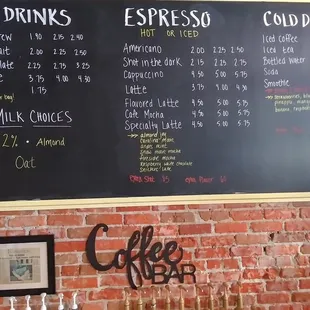 DRINKS
1.90 2.15 2.40
2.00 2.25 2.50
2.25 2.50 2.75
3.75 4.00 4.50
1.75
MILK CHOICES
2% • Almond
Oat
ESPRESSO
HOT or ICED
Americano 2.00 2.25 2.50
Shot in the dark 2.25 2.50 2.75
Cappuccino 4.00 5.00 5.75
Latte 3.75 4.00 4.50
Flavored Latte 4.50 5.00 5.75
Cafe Mocha 4.50 5.00 5.75
Specialty Latte 4.50 5.00 5.75
almond joy
snow moose mocha
fireside mocha
Raspberry white chocolate
Extra Shot
extra Flavor
COLD D
Iced coffee
Iced tea
Bottled Water
Soda
Smoothie
Coffee
BAR